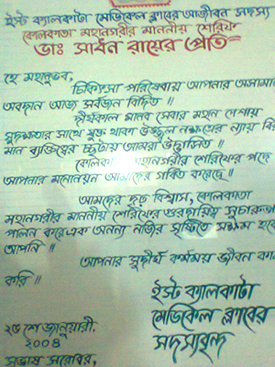 ইস্ট ক্যালকাটা মেডিকেল ক্লাবের আজীবন সদস্য
কোলকাতা মহানগরীর মাননীয় শেরিফ
ডাঃ সাধন রায়ের প্রতি
হে মহানুভব,
চিকিৎসা পরিষেবায় আপনার অসামান্
অবদান আজ সর্বজন বিদিত ॥
দীর্ঘকাল মানব সেবার মহান পেশায়
সুদক্ষতার সাথে যুক্ত থাকা উজ্জ্বল নক্ষত্রের ন্যায় কি
মান ব্যক্তিত্বের ছটায় আমরা উদ্ভাসিত ॥
মহানগরীর শেরিফের পদে
আপনার মনোনয়ন আমাদের গর্বিত করেছে ॥
আমাদের দৃঢ় বিশ্বাস, কোলকাতা
মহানগরীর মাননীয় শেরিফের গুরুদায়িত্ব সুচারুরূপে
পালন করে এক অনন্য নজির সৃষ্টিতে সক্ষম হবে
আপনি ॥
আপনার সুদীর্ঘ কর্মময় জীবন কা
করি ॥
ইস্ট ক্যালকাটা
মেডিকেল ক্লাবের
সদস্যবৃন্দ
২৫ শে জানুয়ারী.
২০০৪
সুভাষ সরোবর,